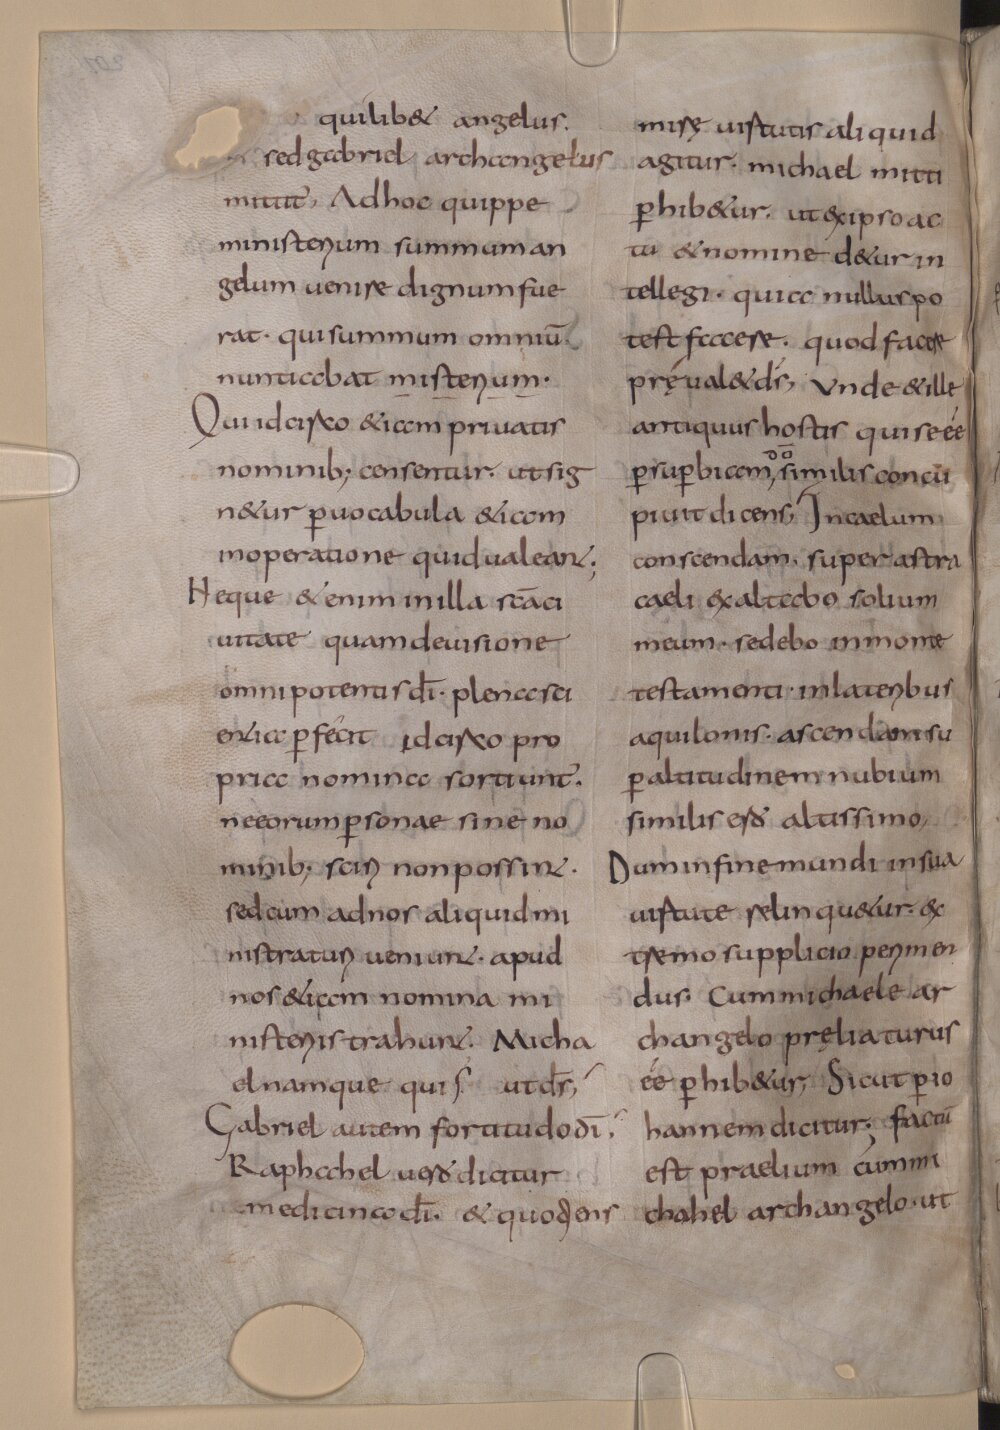 quilib& angelus.
sed gabriel archangelus
mittit̄, Ad hoc quippe
ministerium summum an
gelum uenire dignum fue
rat. qui summum omniū
nuntiabat misterium.
Qui idcirco &iam priuatis
nominib; censentur. ut sig
n&ur p̱ uocabula &iam
inoperatione quid ualeant;
Neque &enim in illa scāci
uitate quam de uisione
omnipotentis dī. plena sci
entia p̱fecit idcirco pro
pria nomina sortiunt̄.
ne eorum p̱sonae sine no
minib; sciri non possint.
sed cum ad nos aliquid mi
nistraturi ueniunt. apud
nos &iam nomina mi
nisteriis trahunt. Micha
el namque quis ut dš;
Gabriel autem fortitudo dī,
Raphahel uero dicitur
medicina dī. & quotiens
mirę uirtutis aliquid
agitur. michael mitti
p̱hib&ur. ut ex ipso ac
tu & nomine d&ur in
tellegi. quia nullus po
test facere. quod facere
pręual& dš, Vnde & ille
antiquus hostis qui se eē
p̱ sup̱biam dō similis concu
piuit dicens, In caelum
conscendam. super astra
caeli exaltabo solium
meum. sedebo in monte
testamenti. in lateribus
aquilonis. ascendam su
p̱ altitudinem nubium
similis ero altissimo,
Dum in fine mundi in sua
uirtute relinqu&ur. ex
tremo supplicio perimen
dus. Cum michaele ar
changelo pręliaturus
eē p̱hib&ur, Sicut p̱ io
hannem dicitur; factū
est praelium cum mi
chahel archangelo. ut